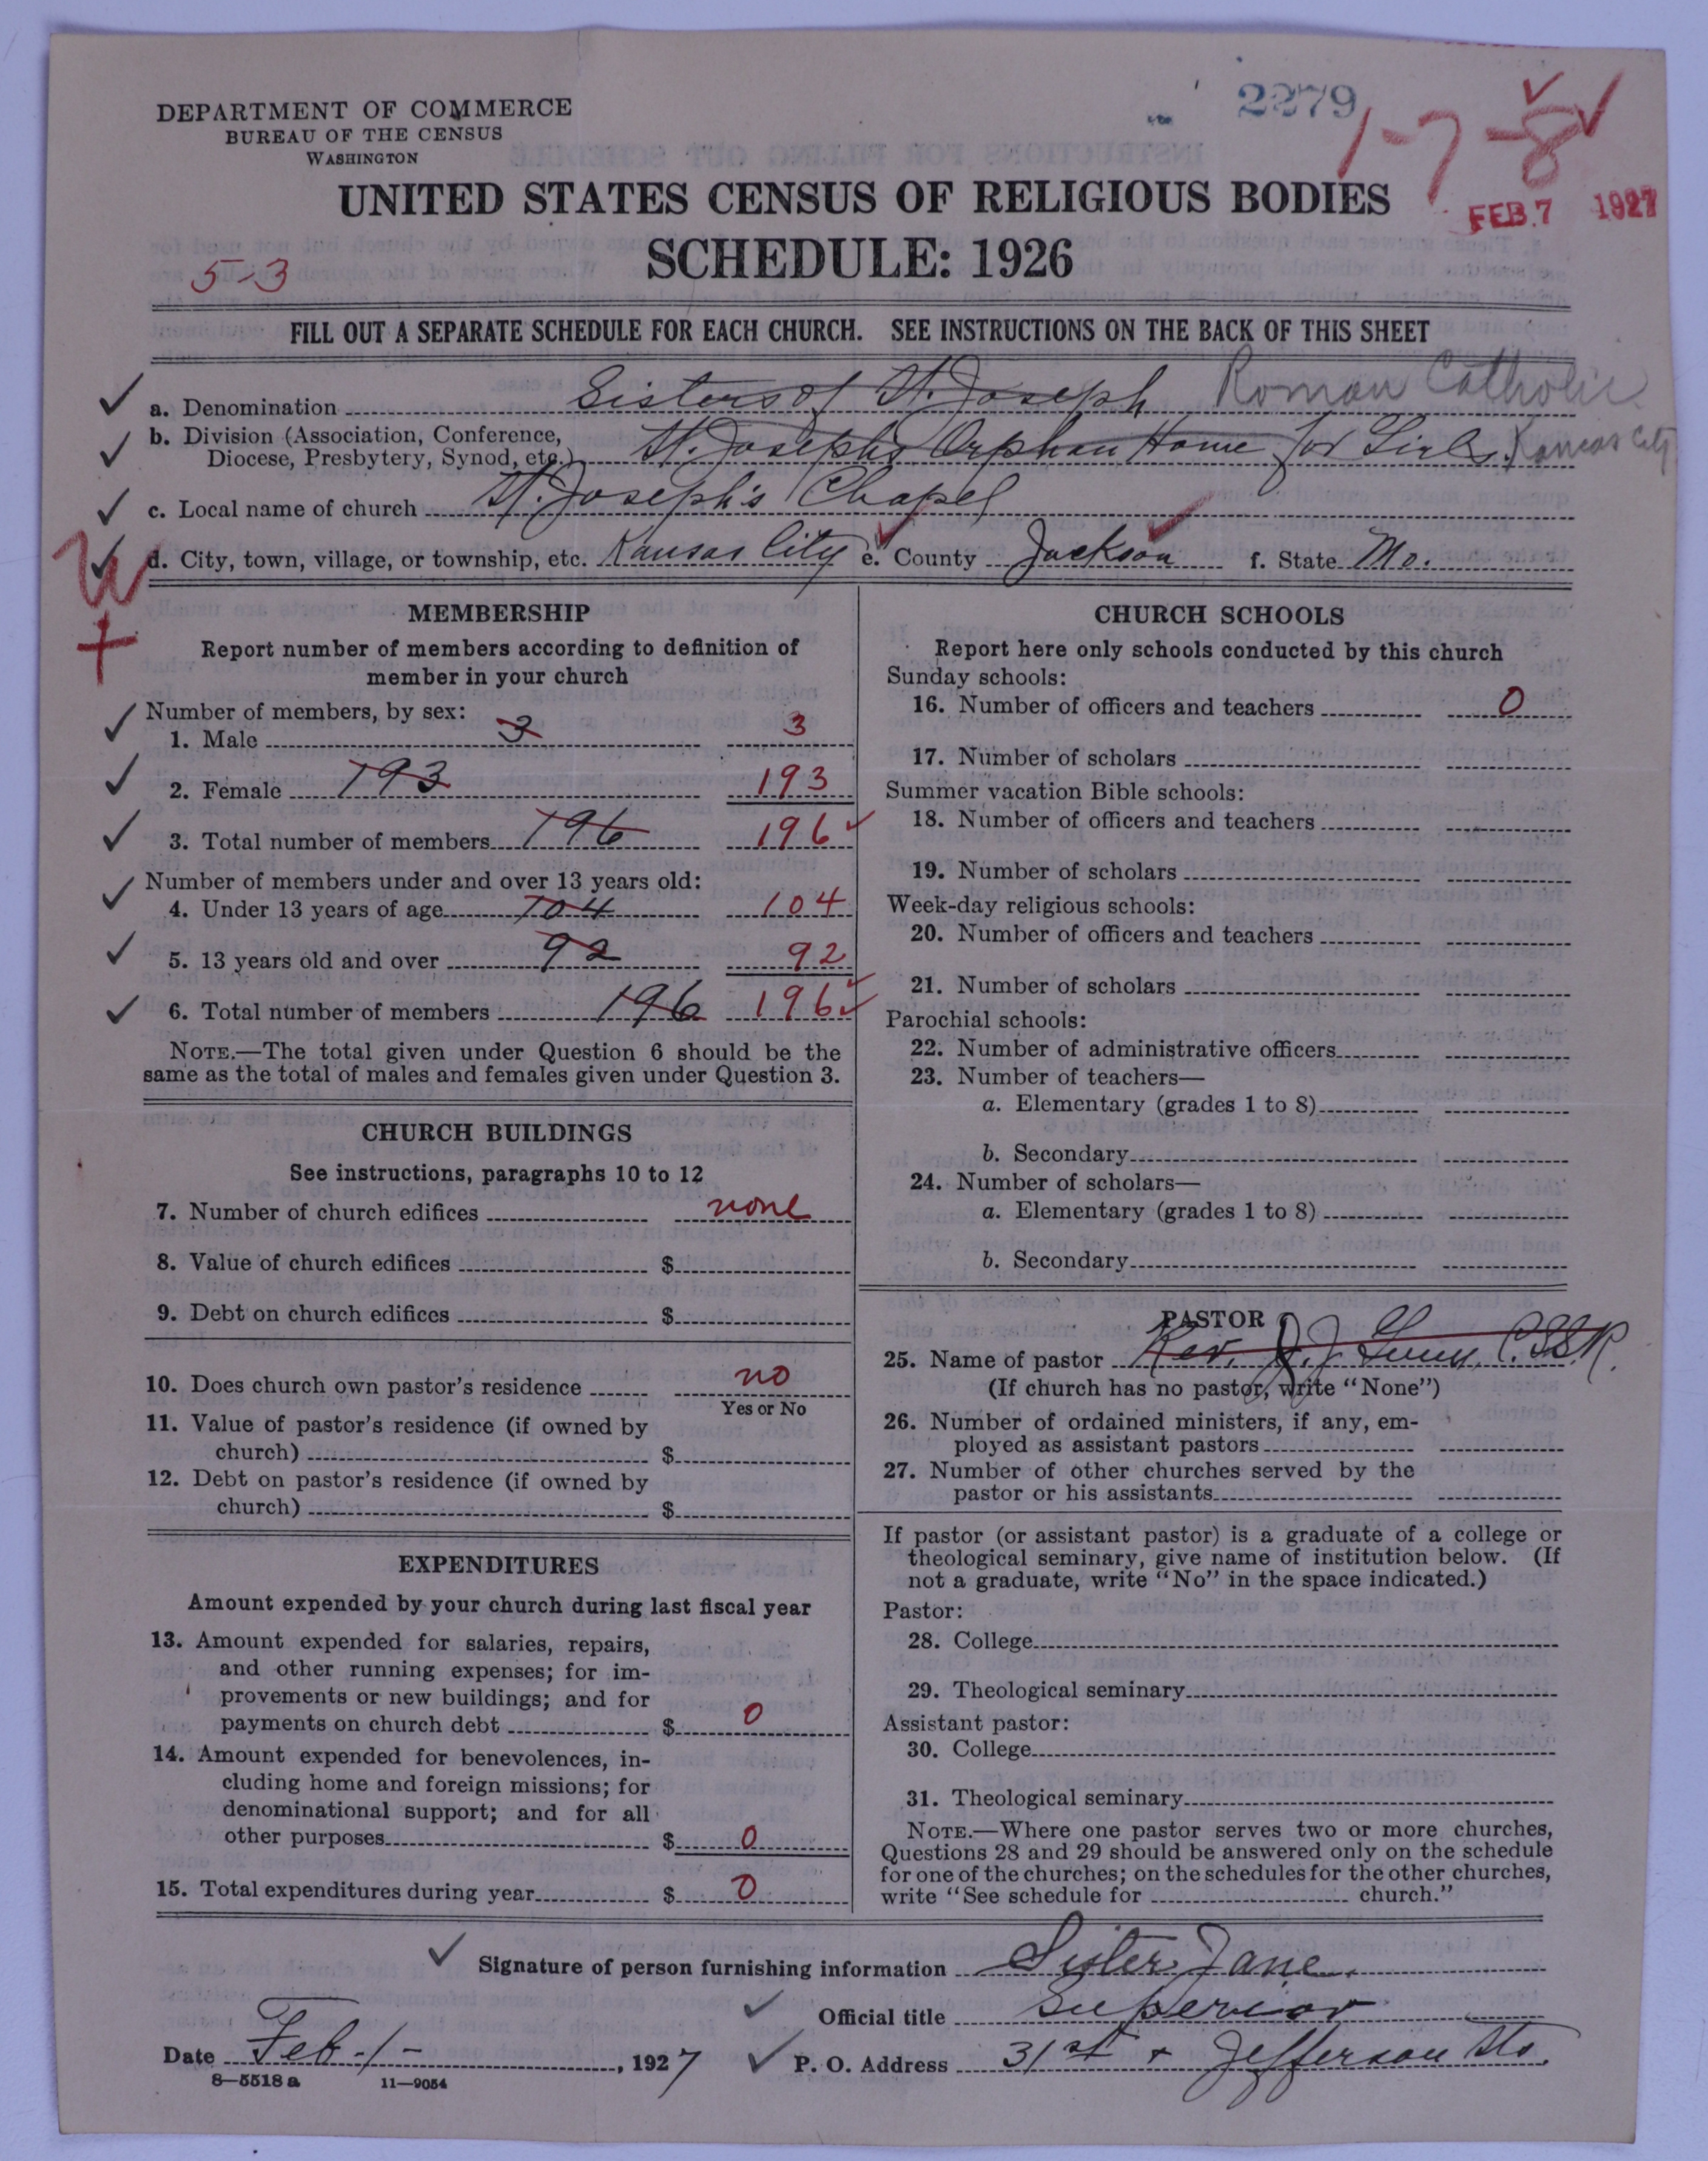 2279
1-7-8
DEPARTMENT OF COMMERCE
BUREAU OF THE CENSUS
WASHINGTON
UNITED STATES CENSUS OF RELIGIOUS BODIES
FEB 7 1927
SCHEDULE: 1926
5-3
FILL OUT A SEPARATE SCHEDULE FOR EACH CHURCH. SEE INSTRUCTIONS ON THE BACK OF THIS SHEET
a. Denomination Sisters of St. Joseph Roman Catholic
b. Division (Association, Conference,
Diocese, Presbytery, Synod, etc.) St. Joseph's Orphan Home for Girls. Kansas City
c. Local name of church St. Joseph's Chapel
d. City, town, village, or township, etc. Kansas City e. County Jackson f. State Mo.
MEMBERSHIP
Report number of members according to definition of
member in your church
Number of members, by sex:
1. Male 3 3
2. Female 193 193
3. Total number of members 196 196
Number of members under and over 13 years old:
4. Under 13 years of age 104 104
5. 13 years old and over 92 92
6. Total number of members 196 196
NOTE.—The total given under Question 6 should be the
same as the total of males and females given under Question 3.
CHURCH BUILDINGS
See instructions, paragraphs 10 to 12
7. Number of church edifices none
8. Value of church edifices $
9. Debt on church edifices $
10. Does church own pastor's residence no
Yes or No
11. Value of pastor's residence (if owned by
church) $
12. Debt on pastor's residence (if owned by
church) $
EXPENDITURES
Amount expended by your church during last fiscal year
13. Amount expended for salaries, repairs,
and other running expenses; for im-
provements or new buildings; and for
payments on church debt $ 0
14. Amount expended for benevolences, in-
cluding home and foreign missions; for
denominational support; and for all
other purposes $ 0
15. Total expenditures during year $ 0
CHURCH SCHOOLS
Report here only schools conducted by this church
Sunday schools:
16. Number of officers and teachers 0
17. Number of scholars
Summer vacation Bible schools:
18. Number of officers and teachers
19. Number of scholars
Week-day religious schools:
20. Number of officers and teachers
21. Number of scholars
Parochial schools:
22. Number of administrative officers
23. Number of teachers—
a. Elementary (grades 1 to 8)
b. Secondary
24. Number of scholars—
a. Elementary (grades 1 to 8)
b. Secondary
PASTOR
25. Name of pastor Rev. J. J. C.SS.R.
(If church has no pastor, write "None")
26. Number of ordained ministers, if any, em-
ployed as assistant pastors
27. Number of other churches served by the
pastor or his assistants
If pastor (or assistant pastor) is a graduate of a college or
theological seminary, give name of institution below. (If
not a graduate, write "No" in the space indicated.)
Pastor:
28. College
29. Theological seminary
Assistant pastor:
30. College
31. Theological seminary
NOTE.—Where one pastor serves two or more churches,
Questions 28 and 29 should be answered only on the schedule
for one of the churches; on the schedules for the other churches,
write "See schedule for church."
Signature of person furnishing information Sister Jane.
Official title Superior
Date Feb-1-, 1927 P. O. Address 31st + Jefferson Sts.
8-5518a 11-9054